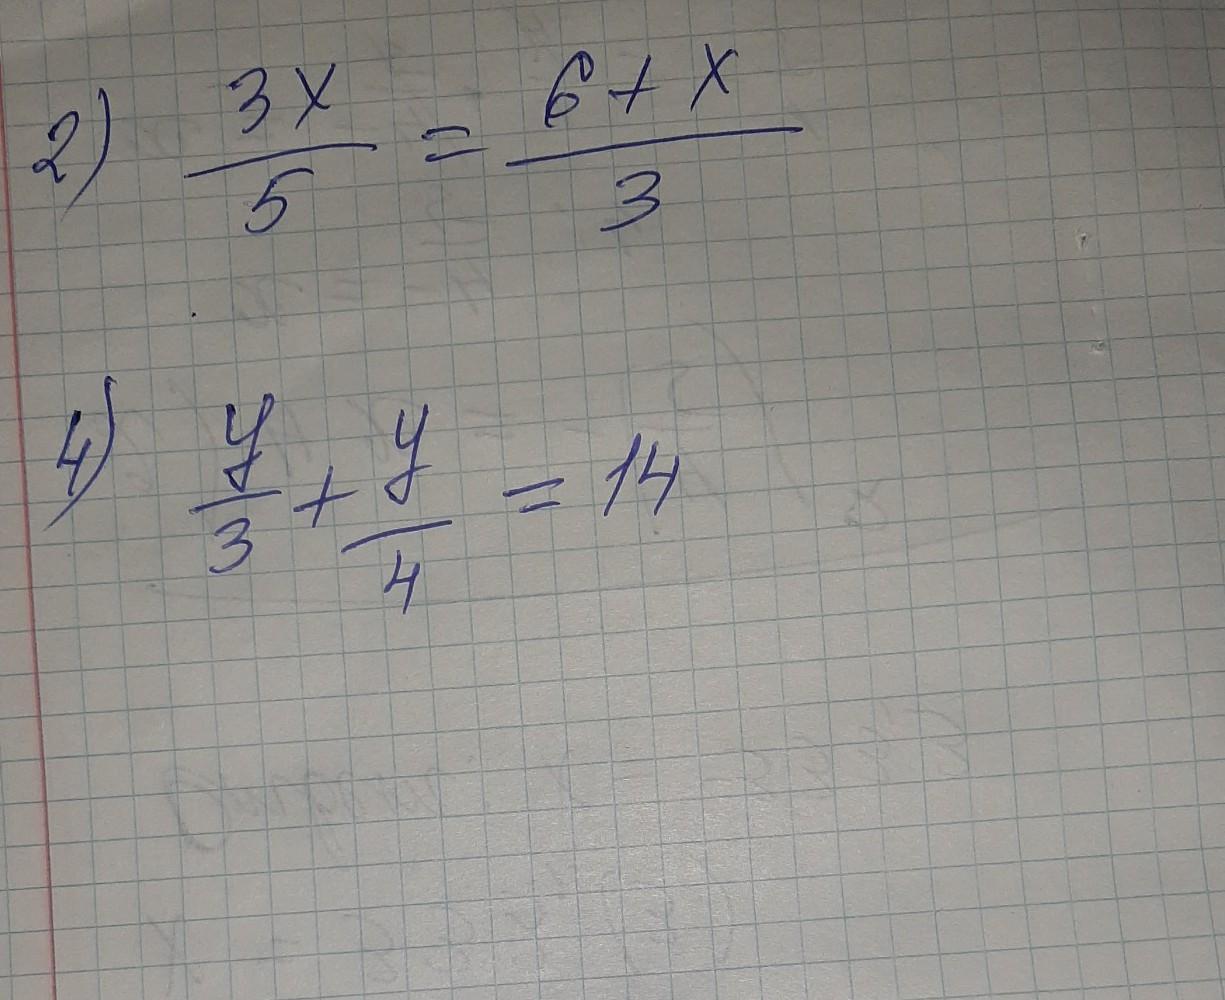 2) 3x/5 = 6+x/3
4) y/3 + y/4 = 14